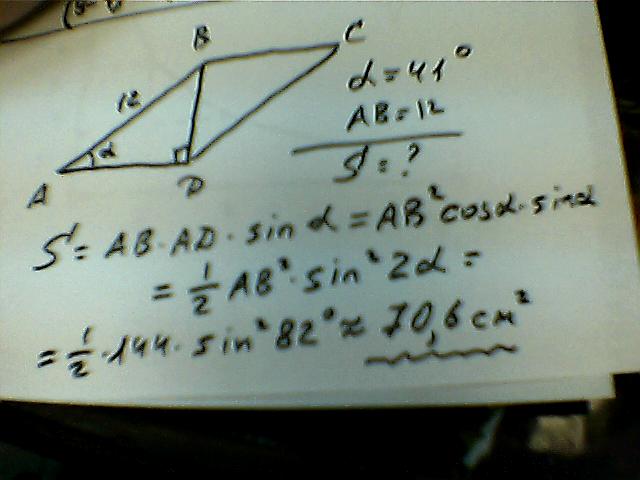 B
C
12
α = 41°
AB = 12
α
S = ?
A
D
S = AB·AD·sin α = AB² cosα·sinα
= 1/2 AB²·sin² 2α =
= 1/2·144·sin² 82° ≈ 70,6 см²